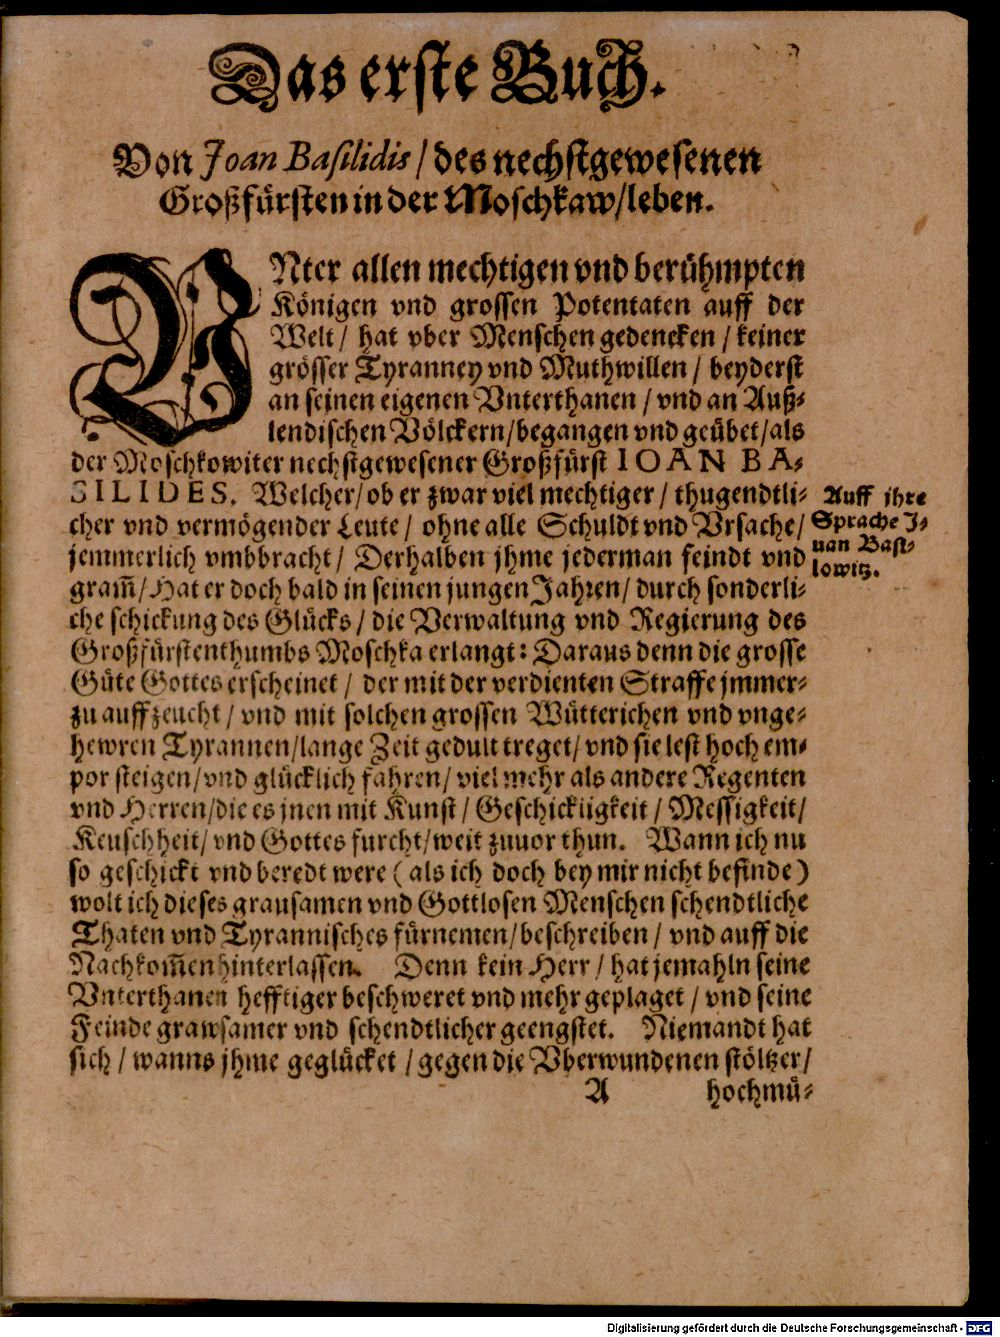 Das erste Buch.
Von Joan Basilidis / des nechstgewesenen
Großfürsten in der Moschkaw / leben.
VNter allen mechtigen vnd berühmpten
Königen vnd grossen Potentaten auff der
Welt / hat vber Menschen gedencken / keiner
grösser Tyranney vnd Muthwillen / beyderst
an seinen eigenen Vnterthanen / vnd an Auß-
lendischen Völckern / begangen vnd geübet / als
der Moschkowiter nechstgewesener Großfürst IOAN BA-
SILIDES. Welcher / ob er zwar viel mechtiger / thugendtli-
cher vnd vermögender Leute / ohne alle Schuldt vnd Vrsache /
jemmerlich vmbbracht / Derhalben jhme jederman feindt vnd
gram̃ / Hat er doch bald in seinen jungen Jahren / durch sonderli-
che schickung des Glücks / die Verwaltung vnd Regierung des
Großfürstenthumbs Moschka erlangt: Daraus denn die grosse
Güte Gottes erscheinet / der mit der verdienten Straffe jmmer-
zu auffzeucht / vnd mit solchen grossen Wütterichen vnd vnge-
hewren Tyrannen / lange Zeit gedult treget / vnd sie lest hoch em-
por steigen / vnd glücklich fahren / viel mehr als andere Regenten
vnd Herren / die es jnen mit Kunst / Geschickligkeit / Messigkeit /
Keuschheit / vnd Gottes furcht / weit zuuor thun. Wann ich nu
so geschickt vnd beredt were ( als ich doch bey mir nicht befinde )
wolt ich dieses grausamen vnd Gottlosen Menschen schendtliche
Thaten vnd Tyrannisches fürnemen / beschreiben / vnd auff die
Nachkom̃en hinterlassen. Denn kein Herr / hat jemahln seine
Vnterthanen hefftiger beschweret vnd mehr geplaget / vnd seine
Feinde grawsamer vnd schendtlicher geengstet. Niemandt hat
sich / wanns jhme geglücket / gegen die Vberwundenen stöltzer /
A hochmü-
Auff jhre
Sprache J-
uan Basi-
lowitz.
Digitalisierung gefördert durch die Deutsche Forschungsgemeinschaft - DFG